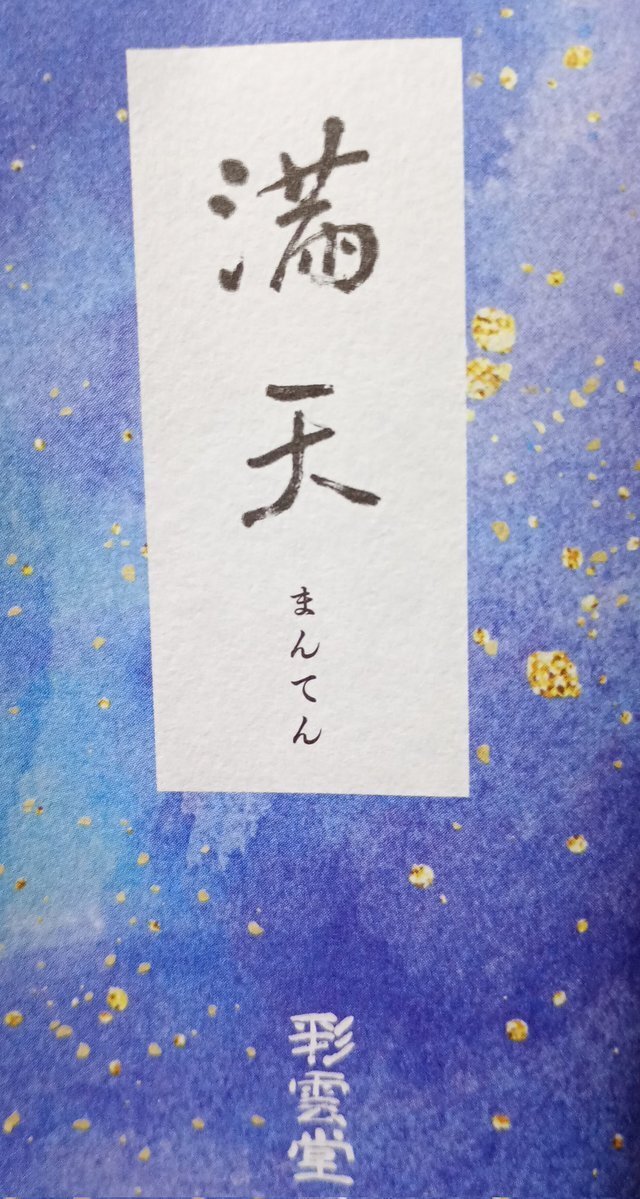 満天
まんてん
彩雲堂